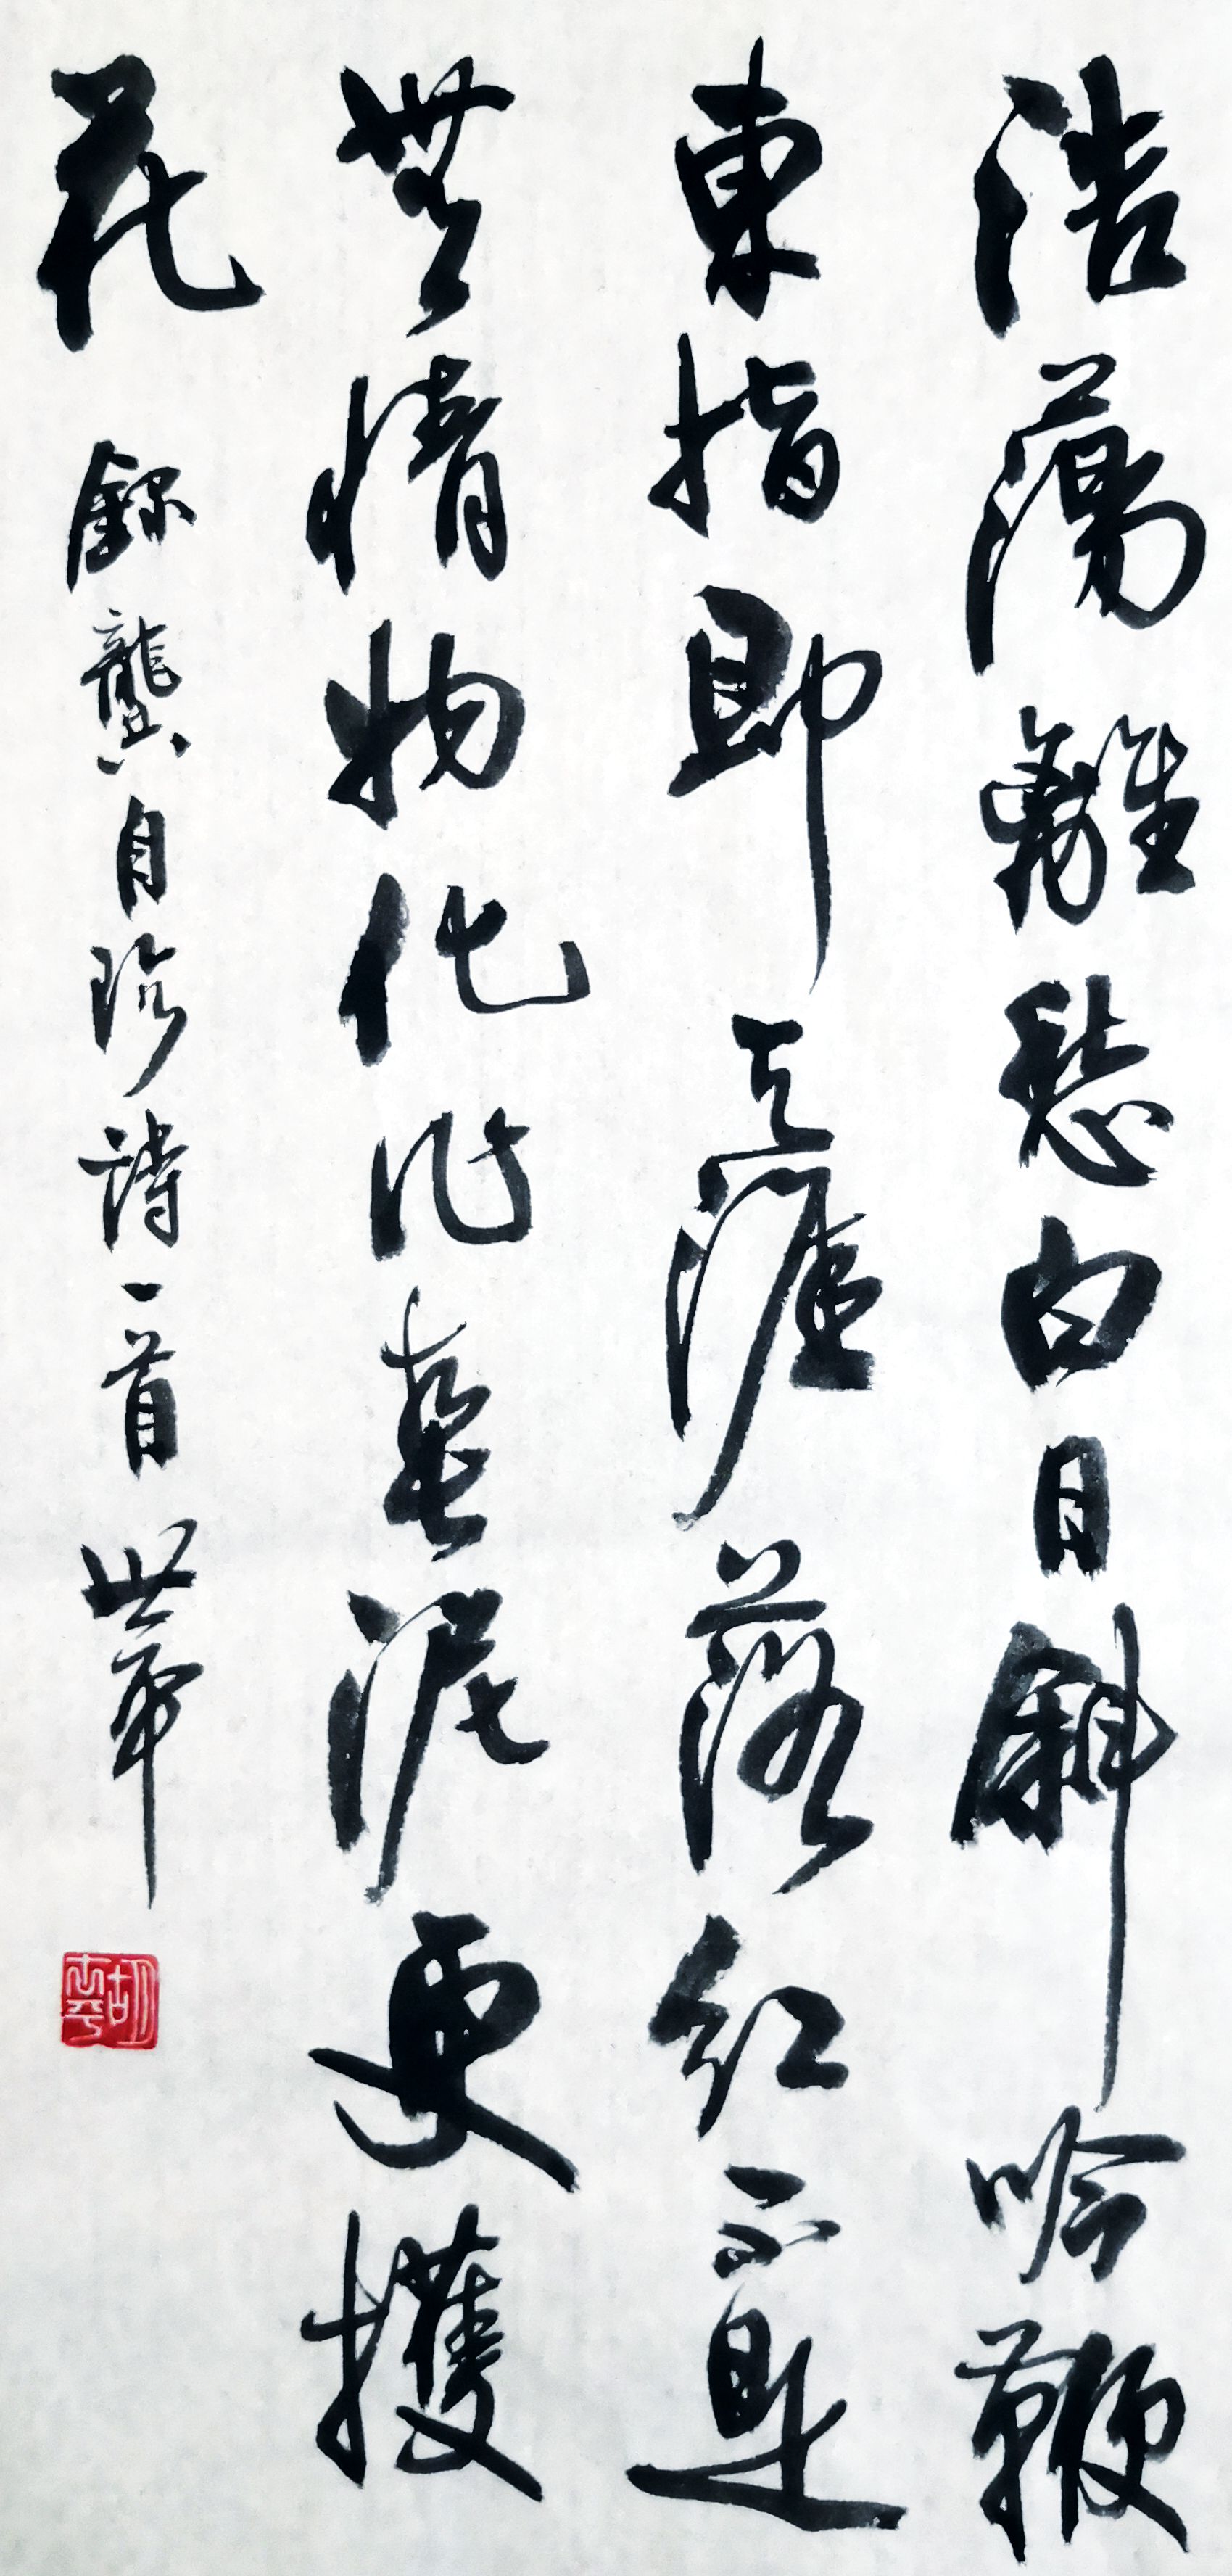 浩蕩離愁白日斜吟鞭
東指即天涯落紅不是
無情物化作春泥更擭
花 錄龔自珍詩一首 世
胡